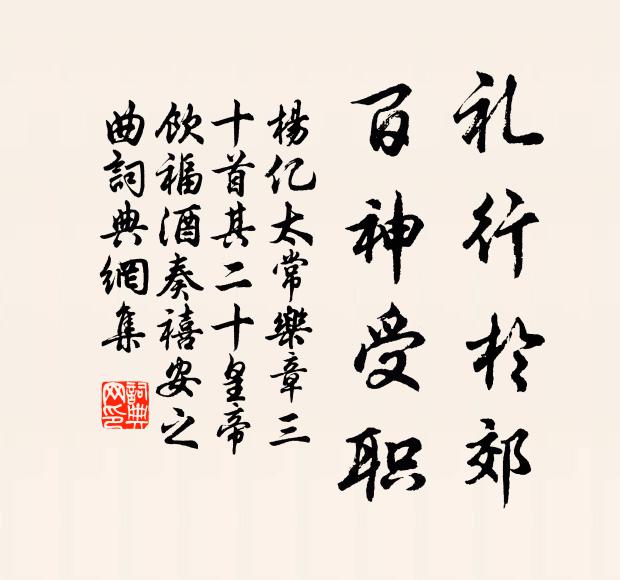 礼行於郊
百神受职
楊亿太常樂章三
十首其二十皇帝
饮福酒奏禧安之
曲詞典網集
詞典
网印